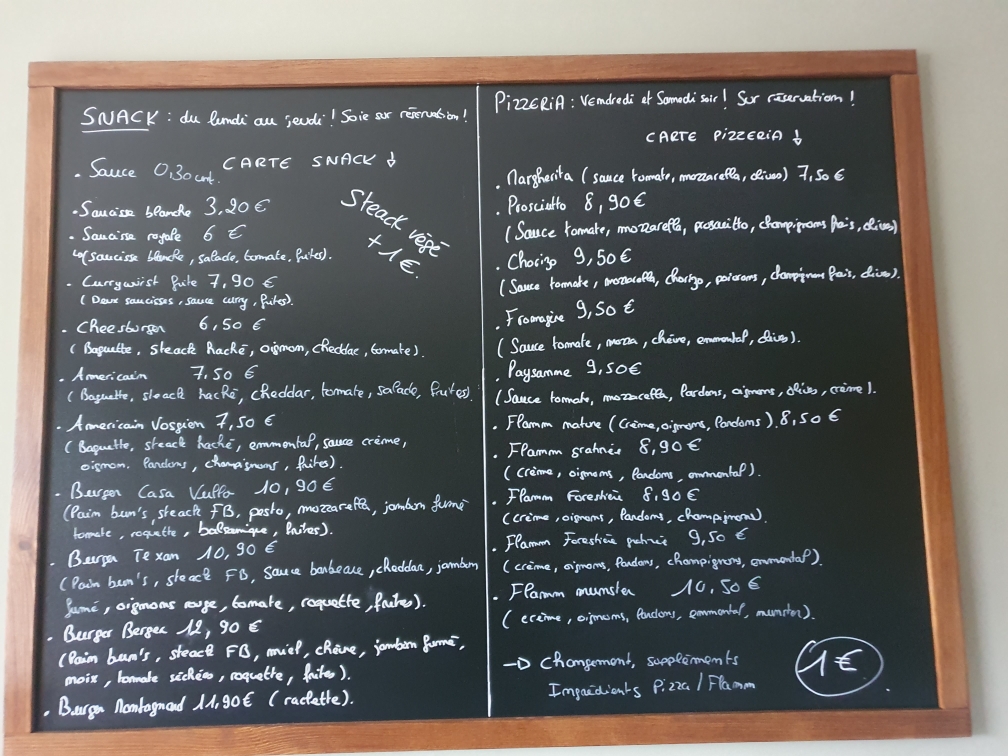 SNACK : du lundi au jeudi ! Soir sur réservation !
CARTE SNACK ↓
. Sauce 0,30 cent.
. Saucisse blanche 3,20 €
. Saucisse royale 6 €
↳ (Saucisse blanche, salade, tomate, frites).
. Currywurst frite 7,90 €
( Deux saucisses, sauce curry, frites).
Steack végé
+ 1 €.
. Cheesburger 6,50 €
( Baguette, Steack haché, oignon, cheddar, tomate).
. Americain 7,50 €
( Baguette, steack haché, cheddar, tomate, salade, frites).
. Americain Vosgien 7,50 €
( Baguette, steack haché, emmental, sauce crème,
oignon. Lardons, champignons, frites).
. Burger Casa Vullo 10,90 €
(Pain bun's, steack FB, pesto, mozzarella, jambon fumé
tomate, roquette, balsamique, frites).
. Burger Texan 10,90 €
(Pain bun's, steack FB, Sauce barbecue, cheddar, jambon
fumé, oignons rouge, tomate, roquette, frites).
. Burger Berger 12,90 €
(Pain bun's, steack FB, miel, chèvre, jambon fumé,
noix, tomate séchées, roquette, frites).
. Burger Montagnard 11,90 € ( raclette).
PIZZERIA : Vendredi et Samedi soir ! Sur réservation !
CARTE PIZZERIA ↓
. Margherita ( sauce tomate, mozzarella, olives) 7,50 €
. Prosciutto 8,90 €
( Sauce tomate, mozzarella, prosciutto, champignons frais, olives)
. Chorizo 9,50 €
( Sauce tomate, mozzarella, chorizo, poivrons, champignons frais, olives).
. Fromagère 9,50 €
( Sauce tomate, mozza, chèvre, emmental, olives).
. Paysanne 9,50 €
(Sauce tomate, mozzarella, Lardons, oignons, olives, crème).
. Flamm nature (Crème, oignons, Lardons) 8,50 €
. Flamm gratinée 8,90 €
( crème, oignons, Lardons, emmental).
. Flamm Forestière 8,90 €
(crème, oignons, Lardons, champignons).
. Flamm Forestière gratinée 9,50 €
( crème, oignons, Lardons, champignons, emmental).
. Flamm munster 10,50 €
( crème, oignons, Lardons, emmental, munster).
→ Changement, suppléments
Ingrédients Pizza / Flamm
1 €